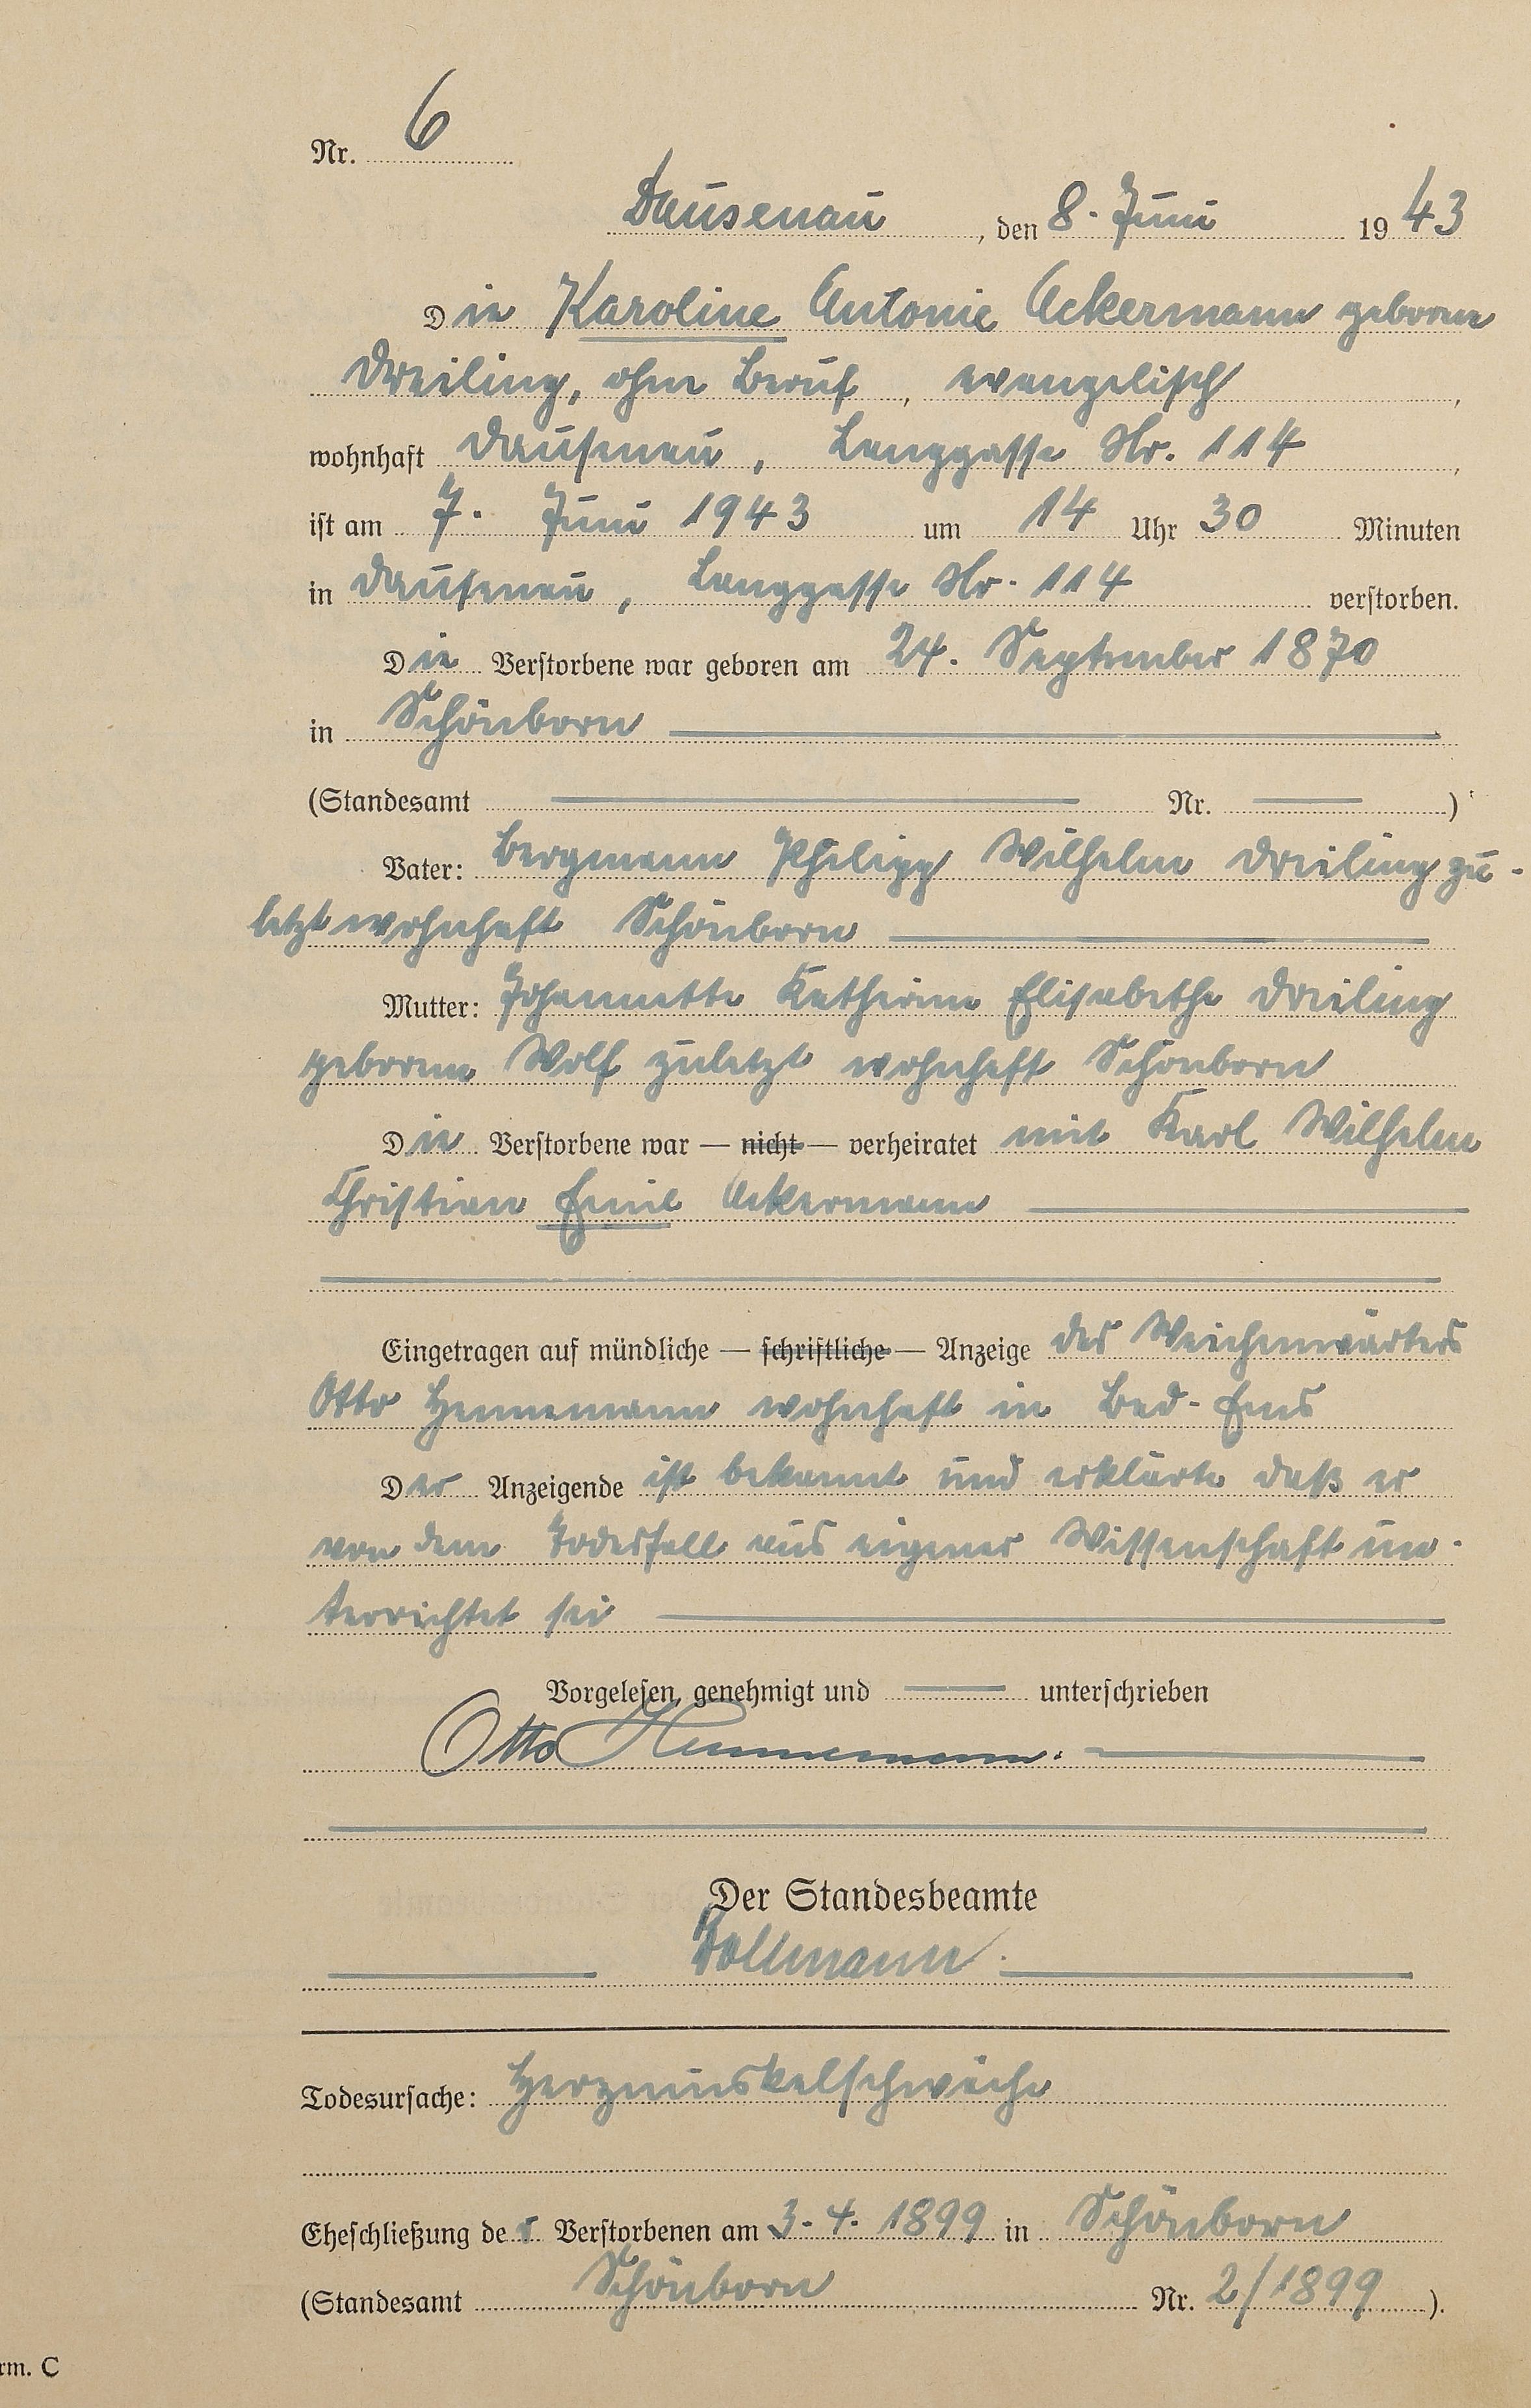 Nr. 6
Dausenau, den 8. Juni 1943
Die Karoline Antonie Ackermann geborene
Dreiling, ohne Beruf, evangelisch,
wohnhaft Dausenau, Langgasse Nr. 114,
ist am 7. Juni 1943 um 14 Uhr 30 Minuten
in Dausenau, Langgasse Nr. 114 verstorben.
Die Verstorbene war geboren am 24. September 1870
in Schönborn
(Standesamt Nr. )
Vater: Bergmann Philipp Wilhelm Dreiling zu-
letzt wohnhaft Schönborn
Mutter: Johannette Katherine Elisabethe Dreiling
geborene Wolf zuletzt wohnhaft Schönborn
Die Verstorbene war — nicht — verheiratet mit Karl Wilhelm
Christian Emil Ackermann
Eingetragen auf mündliche — schriftliche — Anzeige des Weichenwärters
Otto Hennemann wohnhaft in Bad-Ems
Der Anzeigende ist bekannt und erklärte daß er
von dem Todesfall aus eigener Wissenschaft un-
terrichtet sei
Vorgelesen, genehmigt und unterschrieben
Otto Hennemann.
Der Standesbeamte
Dollmann
Todesursache: Herzmuskelschwäche
Eheschließung der Verstorbenen am 3.4.1899 in Schönborn
(Standesamt Schönborn Nr. 2/1899).
rm. C